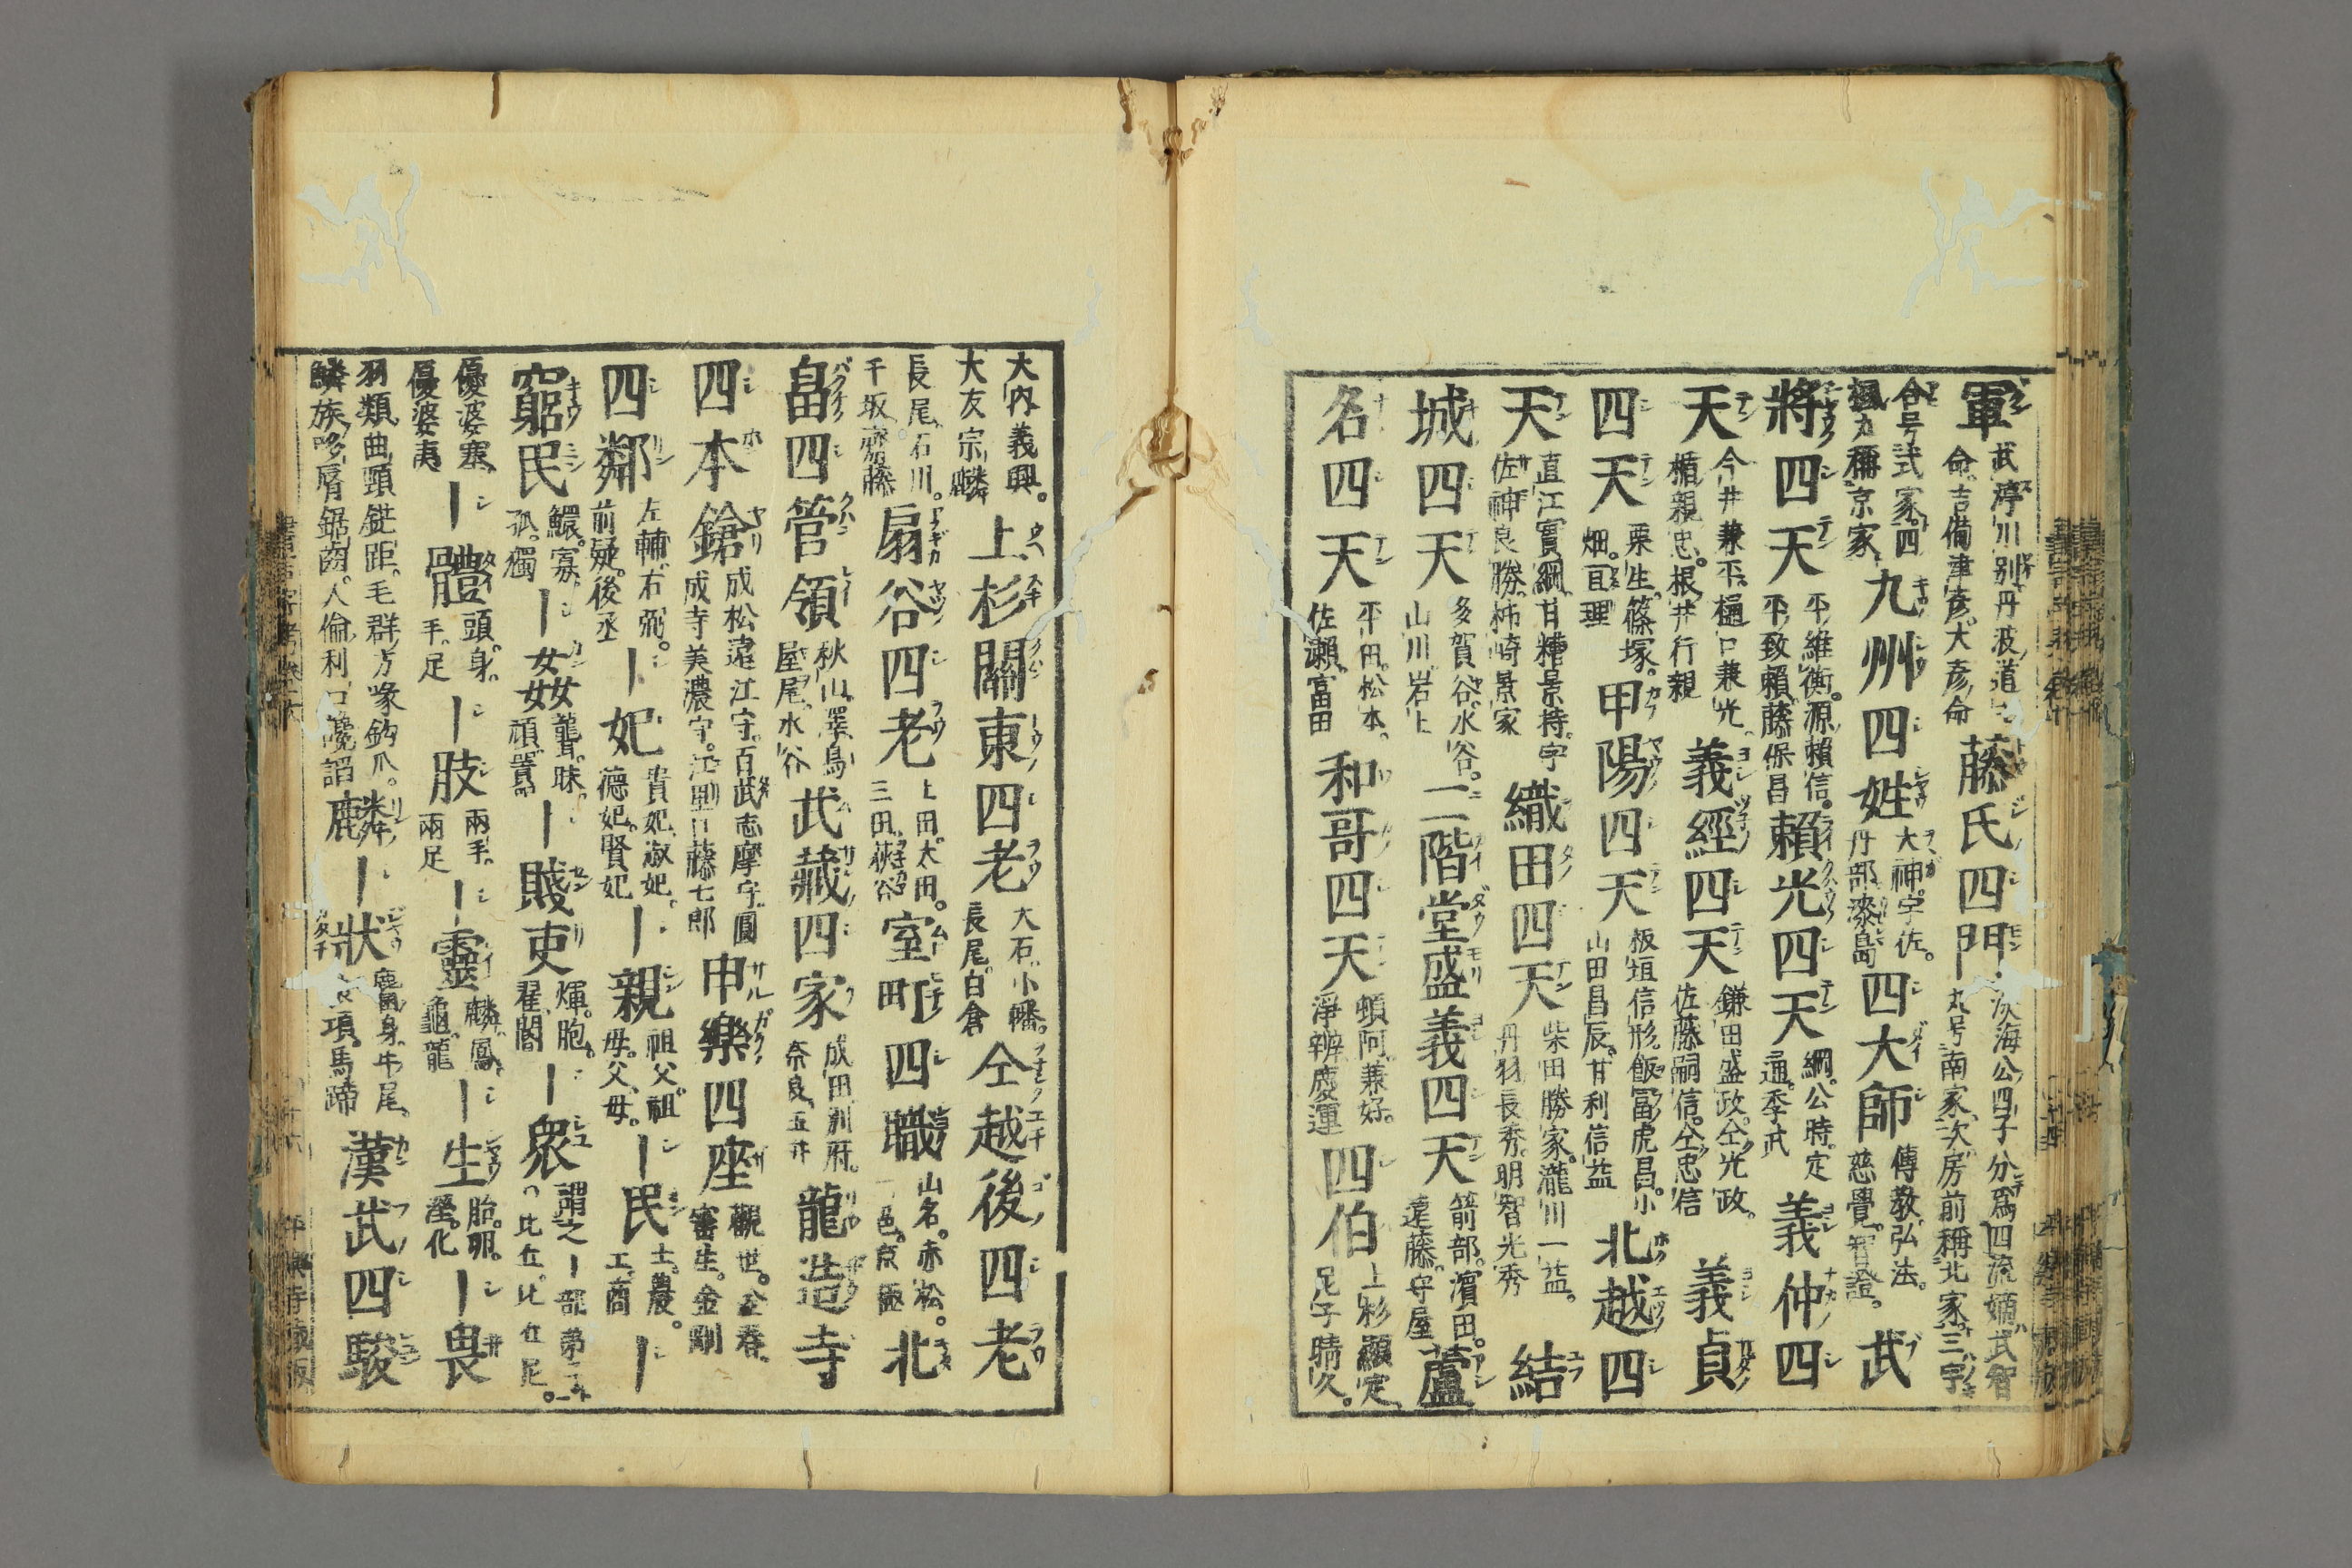 軍 武渟川別丹波道 命吉備津彦大彦命 藤氏四門 淡海公四子分爲四流嫡武智 丸号南家次房前稱北家三宇
合号式家四 楓カ稱京家 九州四姓 大神宇佐 丹部漆島 四大師 傳教弘法 慈覺智證 武
將四天 平維衡源頼信 平致頼藤保昌 頼光四天 綱公時定 通季武 義仲四
天 今井兼平樋口兼光 楯親忠根井行親 義經四天 鎌田盛政仝光政 佐藤嗣信仝忠信 義貞
四天 栗生篠塚 畑亘理 甲陽四天 板垣信形飯冨虎昌小 山田昌辰甘利信益 北越四
天 直江實綱甘糟景持宇 佐神良勝柿崎景家 織田四天 柴田勝家瀧川一益 丹羽長秀明智光秀 結
城四天 多賀谷水谷 山川岩上 二階堂盛義四天 箭部濵田 遠藤守屋 蘆
名四天 平田松本 佐瀬富田 和哥四天 頓阿兼好 淨辨慶運 四伯 上杉顯定 足子晴久
大内義興 大友宗麟 上杉關東四老 大石小幡 長尾白倉 仝越後四老
長尾石川 千坂齋藤 扇谷四老 上田太田 三田荻谷 室町四職 山名赤松 一色京極 北
畠四管領 秋山澤鳥 屋尾水谷 武藏四家 成田別府 奈良玉井 龍造寺
四本鎗 成松遠江守百武志摩守圓 成寺美濃守江里口藤七郎 申樂四座 觀世仝春 寳生金剛
四鄰 左輔右弼 前疑後丞 ー妃 貴妃淑妃 德妃賢妃 ー親 祖父祖 母父母 ー民 士農 工商 ー
窮民 鰥寡 孤獨 ー姦 聾昧 頑嚚 ー賤吏 煇胞 翟閽 ー衆 謂之ー部弟子 比丘比丘尼
優婆塞 優婆夷 ー體 頭身 手足 ー肢 兩手 兩足 ー靈 麟鳳 龜龍 ー生 胎卵 濕化 ー畏
羽類曲頸鉎距毛群方喙鈎爪 鱗族哆脣鋸齒人倫利口讒諂 麟ー狀 麕身牛尾 項馬蹄 漢武四駿